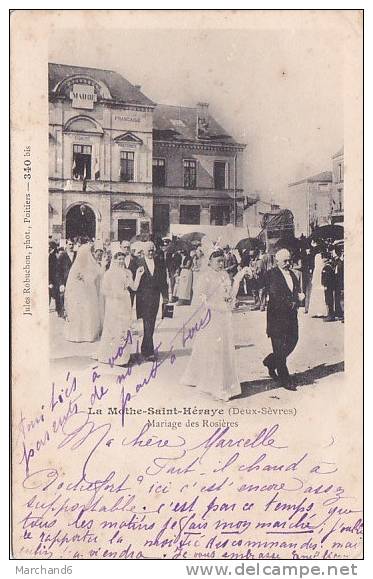 MAIRIE
FRANÇAISE
Jules Robuchon, phot., Poitiers — 340 bis
La Mothe-Saint-Héraye (Deux-Sèvres)
Mariage des Rosières
Amitiés à vous
parents de nous
part à tous
Ma chère Marcelle
Fait-il chaud à
Rochefort? ici c'est encore assez
supportable. c'est parce temps, que
tous les matins je fais mon marché,
ce rapporter la moitié des commandes; mai
viendra. Je vous embrasse
Marchand6
© www.delcampe.net